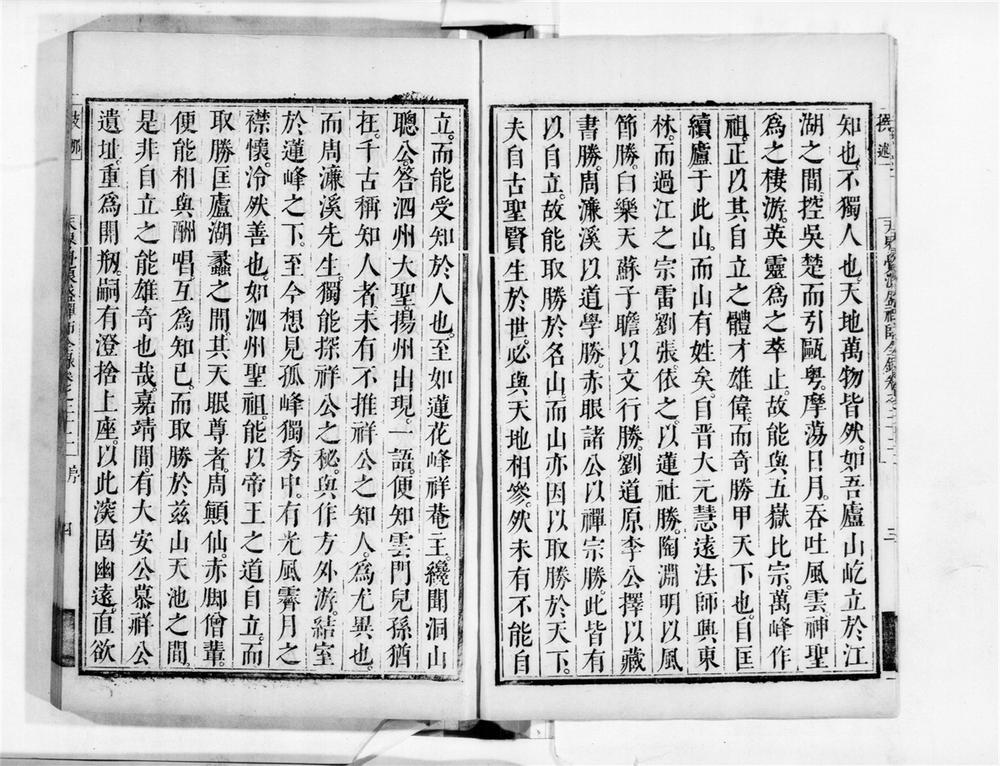 知也。不獨人也。天地萬物皆然。如吾廬山屹立於江
湖之間。控吳楚而引甌粵。摩蕩日月。吞吐風雲。神聖
爲之棲游。英靈爲之萃止。故能與五嶽比宗。萬峰作
祖。正以其自立之體才雄偉。而奇勝甲天下也。自匡
續廬于此山。而山有姓矣。自晉大元慧遠法師興東
林。而過江之宗雷劉張。依之。以蓮社勝。陶淵明以風
節勝。白樂天蘇子瞻以文行勝。劉道原李公擇以藏
書勝。周濂溪以道學勝。赤眼諸公以禪宗勝。此皆有
以自立。故能取勝於名山。而山亦因以取勝於天下。
夫自古聖賢生於世。必與天地相參。然未有不能自
立。而能受知於人也。至如蓮花峰祥菴主。纔聞洞山
聰公。答泗州大聖揚州出現。一語。便知雲門兒孫猶
在。千古稱知人者。未有不推祥公之知人。爲尤異也。
而周濂溪先生。獨能探祥公之秘。與作方外游。結室
於蓮峰之下。至今想見孤峰獨秀中。有光風霽月之
襟懷。泠然善也。如泗州聖祖。能以帝王之道自立。而
取勝匡廬湖蠡之間。其天眼尊者。周顛仙。赤脚僧輩。
便能相與酬唱。互爲知己。而取勝於茲山天池之間。
是非自立之能雄奇也哉。嘉靖間。有大安公慕祥公
遺址。重爲開剏。嗣有澄捨上座。以此溪固幽遠。直欲